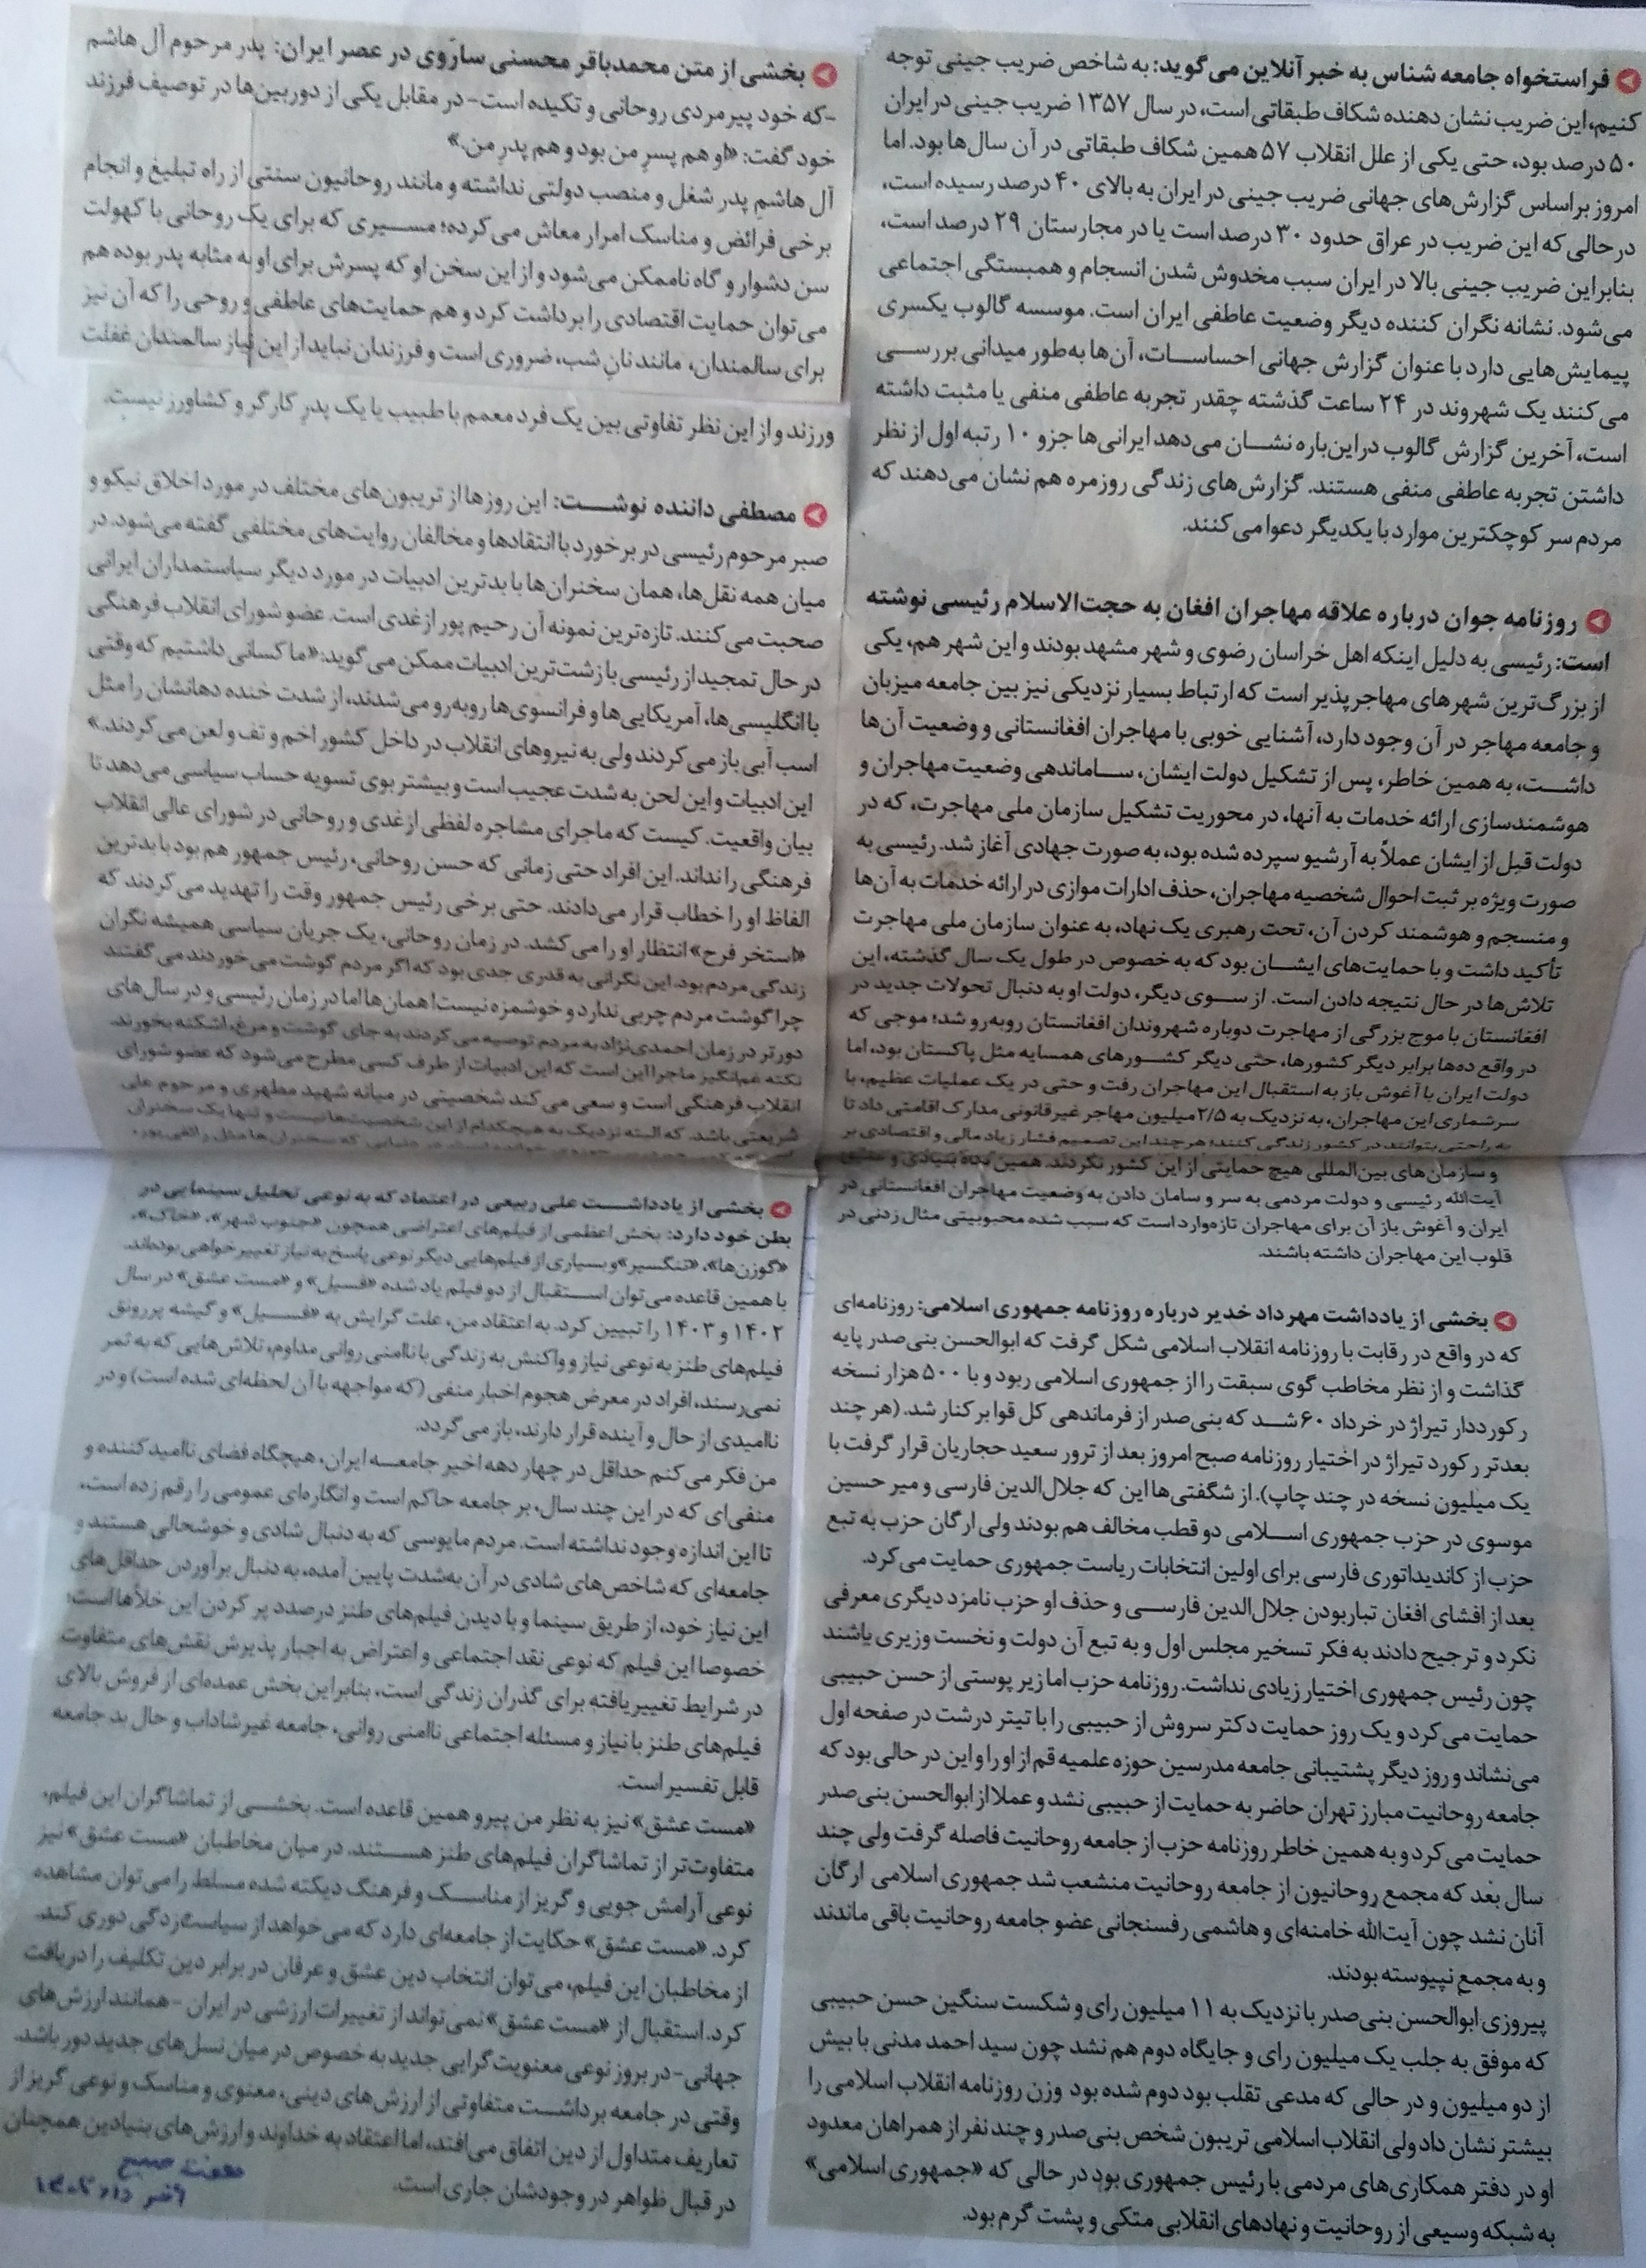 فراستخواه جامعه شناس به خبرآنلاین می‌گوید: به شاخص ضریب جینی توجه
کنیم، این ضریب نشان دهنده شکاف طبقاتی است، در سال ۱۳۵۷ ضریب جینی در ایران
۵۰ درصد بود، حتی یکی از علل انقلاب ۵۷ همین شکاف طبقاتی در آن سال‌ها بود. اما
امروز براساس گزارش‌های جهانی ضریب جینی در ایران به بالای ۴۰ درصد رسیده است،
درحالی که این ضریب در عراق حدود ۳۰ درصد است یا در مجارستان ۲۹ درصد است،
بنابراین ضریب جینی بالا در ایران سبب مخدوش شدن انسجام و همبستگی اجتماعی
می‌شود. نشانه نگران کننده دیگر وضعیت عاطفی ایران است. موسسه گالوب یکسری
پیمایش‌هایی دارد با عنوان گزارش جهانی احساسات، آن‌ها به‌طور میدانی بررسی
می‌کنند یک شهروند در ۲۴ ساعت گذشته چقدر تجربه عاطفی منفی یا مثبت داشته
است، آخرین گزارش گالوب دراین‌باره نشان می‌دهد ایرانی‌ها جزو ۱۰ رتبه اول از نظر
داشتن تجربه عاطفی منفی هستند. گزارش‌های زندگی روزمره هم نشان می‌دهند که
مردم سر کوچکترین موارد با یکدیگر دعوا می‌کنند.
روزنامه جوان درباره علاقه مهاجران افغان به حجت‌الاسلام رئیسی نوشته
است: رئیسی به دلیل اینکه اهل خراسان رضوی و شهر مشهد بودند و این شهر هم، یکی
از بزرگ‌ترین شهرهای مهاجرپذیر است که ارتباط بسیار نزدیکی نیز بین جامعه میزبان
و جامعه مهاجر در آن وجود دارد، آشنایی خوبی با مهاجران افغانستانی و وضعیت آن‌ها
داشت، به همین خاطر، پس از تشکیل دولت ایشان، ساماندهی وضعیت مهاجران و
هوشمندسازی ارائه خدمات به آنها، در محوریت تشکیل سازمان ملی مهاجرت، که در
دولت قبل از ایشان عملاً به آرشیو سپرده شده بود، به صورت جهادی آغاز شد. رئیسی به
صورت ویژه بر ثبت احوال شخصیه مهاجران، حذف ادارات موازی در ارائه خدمات به آن‌ها
و منسجم و هوشمند کردن آن، تحت رهبری یک نهاد، به عنوان سازمان ملی مهاجرت
تأکید داشت و با حمایت‌های ایشان بود که به خصوص در طول یک سال گذشته، این
تلاش‌ها در حال نتیجه دادن است. از سوی دیگر، دولت او به دنبال تحولات جدید در
افغانستان با موج بزرگی از مهاجرت دوباره شهروندان افغانستان روبه‌رو شد؛ موجی که
در واقع ده‌ها برابر دیگر کشورها، حتی دیگر کشورهای همسایه مثل پاکستان بود، اما
دولت ایران با آغوش باز به استقبال این مهاجران رفت و حتی در یک عملیات عظیم، با
سرشماری این مهاجران، به نزدیک به ۲/۵ میلیون مهاجر غیرقانونی مدارک اقامتی داد تا
به راحتی بتوانند در کشور زندگی کنند؛ هرچند این تصمیم فشار زیاد مالی و اقتصادی بر
و سازمان‌های بین‌المللی هیچ حمایتی از این کشور نکردند. همین
آیت‌الله رئیسی و دولت مردمی به سر و سامان دادن به وضعیت مهاجران افغانستانی در
ایران و آغوش باز آن برای مهاجران تازه‌وارد است که سبب شده محبوبیتی مثال زدنی در
قلوب این مهاجران داشته باشند.
بخشی از یادداشت مهرداد خدیر درباره روزنامه جمهوری اسلامی: روزنامه‌ای
که در واقع در رقابت با روزنامه انقلاب اسلامی شکل گرفت که ابوالحسن بنی‌صدر پایه
گذاشت و از نظر مخاطب گوی سبقت را از جمهوری اسلامی ربود و با ۵۰۰ هزار نسخه
رکورددار تیراژ در خرداد ۶۰ شد که بنی‌صدر از فرماندهی کل قوا برکنار شد. (هر چند
بعدتر رکورد تیراژ در اختیار روزنامه صبح امروز بعد از ترور سعید حجاریان قرار گرفت با
یک میلیون نسخه در چند چاپ). از شگفتی‌ها این که جلال‌الدین فارسی و میر حسین
موسوی در حزب جمهوری اسلامی دو قطب مخالف هم بودند ولی ارگان حزب به تبع
حزب از کاندیداتوری فارسی برای اولین انتخابات ریاست جمهوری حمایت می‌کرد.
بعد از افشای افغان تبار بودن جلال‌الدین فارسی و حذف او حزب نامزد دیگری معرفی
نکرد و ترجیح دادند به فکر تسخیر مجلس اول و به تبع آن دولت و نخست وزیری باشند
چون رئیس جمهوری اختیار زیادی نداشت. روزنامه حزب اما زیر پوستی از حسن حبیبی
حمایت می‌کرد و یک روز حمایت دکتر سروش از حبیبی را با تیتر درشت در صفحه اول
می‌نشاند و روز دیگر پشتیبانی جامعه مدرسین حوزه علمیه قم از او را و این در حالی بود که
جامعه روحانیت مبارز تهران حاضر به حمایت از حبیبی نشد و عملا از ابوالحسن بنی‌صدر
حمایت می‌کرد و به همین خاطر روزنامه حزب از جامعه روحانیت فاصله گرفت ولی چند
سال بعد که مجمع روحانیون از جامعه روحانیت منشعب شد جمهوری اسلامی ارگان
آنان نشد چون آیت‌الله خامنه‌ای و هاشمی رفسنجانی عضو جامعه روحانیت باقی ماندند
و به مجمع نپیوسته بودند.
پیروزی ابوالحسن بنی‌صدر با نزدیک به ۱۱ میلیون رای و شکست سنگین حسن حبیبی
که موفق به جلب یک میلیون رای و جایگاه دوم هم نشد چون سید احمد مدنی با بیش
از دو میلیون و در حالی که مدعی تقلب بود دوم شده بود وزن روزنامه انقلاب اسلامی را
بیشتر نشان داد ولی انقلاب اسلامی تریبون شخص بنی‌صدر و چند نفر از همراهان معدود
او در دفتر همکاری‌های مردمی با رئیس جمهوری بود در حالی که «جمهوری اسلامی»
به شبکه وسیعی از روحانیت و نهادهای انقلابی متکی و پشت گرم بود.
بخشی از متن محمدباقر محسنی ساروی در عصر ایران: پدر مرحوم آل هاشم
-که خود پیرمردی روحانی و تکیده است- در مقابل یکی از دوربین‌ها در توصیف فرزند
خود گفت: «او هم پسرِ من بود و هم پدرِ من.»
آل هاشمِ پدر شغل و منصب دولتی نداشته و مانند روحانیون سنتی از راه تبلیغ و انجام
برخی فرائض و مناسک امرار معاش می‌کرده؛ مسیری که برای یک روحانی با کهولت
سن دشوار و گاه ناممکن می‌شود و از این سخن او که پسرش برای او به مثابه پدر بوده هم
می‌توان حمایت اقتصادی را برداشت کرد و هم حمایت‌های عاطفی و روحی را که آن نیز
برای سالمندان، مانند نانِ شب، ضروری است و فرزندان نباید از این نیاز سالمندان غفلت
ورزند و از این نظر تفاوتی بین یک فرد معمم با طبیب یا یک پدرِ کارگر و کشاورز نیست.
مصطفی داننده نوشت: این روزها از تریبون‌های مختلف در مورد اخلاق نیکو و
صبر مرحوم رئیسی در برخورد با انتقادها و مخالفان روایت‌های مختلفی گفته می‌شود. در
میان همه نقل‌ها، همان سخنران‌ها با بدترین ادبیات در مورد دیگر سیاستمداران ایرانی
صحبت می‌کنند. تازه‌ترین نمونه آن رحیم پور ازغدی است. عضو شورای انقلاب فرهنگی
در حال تمجید از رئیسی با زشت‌ترین ادبیات ممکن می‌گوید: «ما کسانی داشتیم که وقتی
با انگلیسی‌ها، آمریکایی‌ها و فرانسوی‌ها روبه‌رو می‌شدند، از شدت خنده دهانشان را مثل
اسب آبی باز می‌کردند ولی به نیروهای انقلاب در داخل کشور اخم و تف و لعن می‌کردند.»
این ادبیات و این لحن به شدت عجیب است و بیشتر بوی تسویه حساب سیاسی می‌دهد تا
بیان واقعیت. کیست که ماجرای مشاجره لفظی ازغدی و روحانی در شورای عالی انقلاب
فرهنگی را نداند. این افراد حتی زمانی که حسن روحانی، رئیس جمهور هم بود با بدترین
الفاظ او را خطاب قرار می‌دادند. حتی برخی رئیس جمهور وقت را تهدید می‌کردند که
«استخر فرح» انتظار او را می‌کشد. در زمان روحانی، یک جریان سیاسی همیشه نگران
زندگی مردم بود. این نگرانی به قدری جدی بود که اگر مردم گوشت می‌خوردند می‌گفتند
چرا گوشت مردم چربی ندارد و خوشمزه نیست! همان‌ها اما در زمان رئیسی و در سال‌های
دورتر در زمان احمدی‌نژاد به مردم توصیه می‌کردند به جای گوشت و مرغ، اشکنه بخورند.
نکته غم‌انگیز ماجرا این است که این ادبیات از طرف کسی مطرح می‌شود که عضو شورای
انقلاب فرهنگی است و سعی می‌کند شخصیتی در میانه شهید مطهری و مرحوم علی
شریعتی باشد. که البته نزدیک به هیچکدام از این شخصیت‌ها نیست و تنها یک سخنران
بخشی از یادداشت علی ربیعی در اعتماد که به نوعی تحلیل سینمایی در
بطن خود دارد: بخش اعظمی از فیلم‌های اعتراضی همچون «جنوب شهر»، «خاک»،
«گوزن‌ها»، «تنگسیر» و بسیاری از فیلم‌هایی دیگر نوعی پاسخ به نیاز تغییرخواهی بوده‌اند.
با همین قاعده می‌توان استقبال از دو فیلم یاد شده «فسیل» و «مست عشق» در سال
۱۴۰۲ و ۱۴۰۳ را تبیین کرد. به اعتقاد من، علت گرایش به «فسیل» و گیشه پررونق
فیلم‌های طنز به نوعی نیاز و واکنش به زندگی با ناامنی روانی مداوم، تلاش‌هایی که به ثمر
نمی‌رسند، افراد در معرض هجوم اخبار منفی (که مواجهه با آن لحظه‌ای شده است) و در
ناامیدی از حال و آینده قرار دارند، باز می‌گردد.
من فکر می‌کنم حداقل در چهار دهه اخیر جامعه ایران، هیچگاه فضای ناامیدکننده و
منفی‌ای که در این چند سال، بر جامعه حاکم است و انگاره‌ای عمومی را رقم زده است،
تا این اندازه وجود نداشته است. مردم مایوسی که به دنبال شادی و خوشحالی هستند و
جامعه‌ای که شاخص‌های شادی در آن به‌شدت پایین آمده، به دنبال برآوردن حداقل‌های
این نیاز خود، از طریق سینما و با دیدن فیلم‌های طنز درصدد پر کردن این خلأها است؛
خصوصا این فیلم که نوعی نقد اجتماعی و اعتراض به اجبار پذیرش نقش‌های متفاوت
در شرایط تغییریافته برای گذران زندگی است، بنابراین بخش عمده‌ای از فروش بالای
فیلم‌های طنز با نیاز و مسئله اجتماعی ناامنی روانی، جامعه غیرشاداب و حال بد جامعه
قابل تفسیر است.
«مست عشق» نیز به نظر من پیرو همین قاعده است. بخشی از تماشاگران این فیلم،
متفاوت‌تر از تماشاگران فیلم‌های طنز هستند. در میان مخاطبان «مست عشق» نیز
نوعی آرامش جویی و گریز از مناسک و فرهنگ دیکته شده مسلط را می‌توان مشاهده
کرد. «مست عشق» حکایت از جامعه‌ای دارد که می‌خواهد از سیاست‌زدگی دوری کند.
از مخاطبان این فیلم، می‌توان انتخاب دین عشق و عرفان در برابر دین تکلیف را دریافت
کرد. استقبال از «مست عشق» نمی‌تواند از تغییرات ارزشی در ایران -همانند ارزش‌های
جهانی- در بروز نوعی معنویت‌گرایی جدید به خصوص در میان نسل‌های جدید دور باشد.
وقتی در جامعه برداشت متفاوتی از ارزش‌های دینی، معنوی و مناسک و نوعی گریز از
تعاریف متداول از دین اتفاق می‌افتد، اما اعتقاد به خداوند و ارزش‌های بنیادین همچنان
در قبال ظواهر در وجودشان جاری است.
هفت صبح